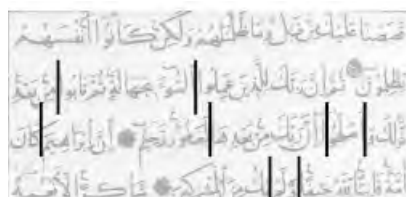 قصصنا عليك من قبل وما ظلمنهم ولكن كانوا أنفسهم
يظلمون ثم إن ربك للذين عملوا السوء بجهلة ثم تابوا من بعد
ذلك وأصلحوا إن ربك من بعدها لغفور رحيم إن إبراهيم كان
أمة قانتا لله حنيفا ولم يك من المشركين شاكرا لأنعمه